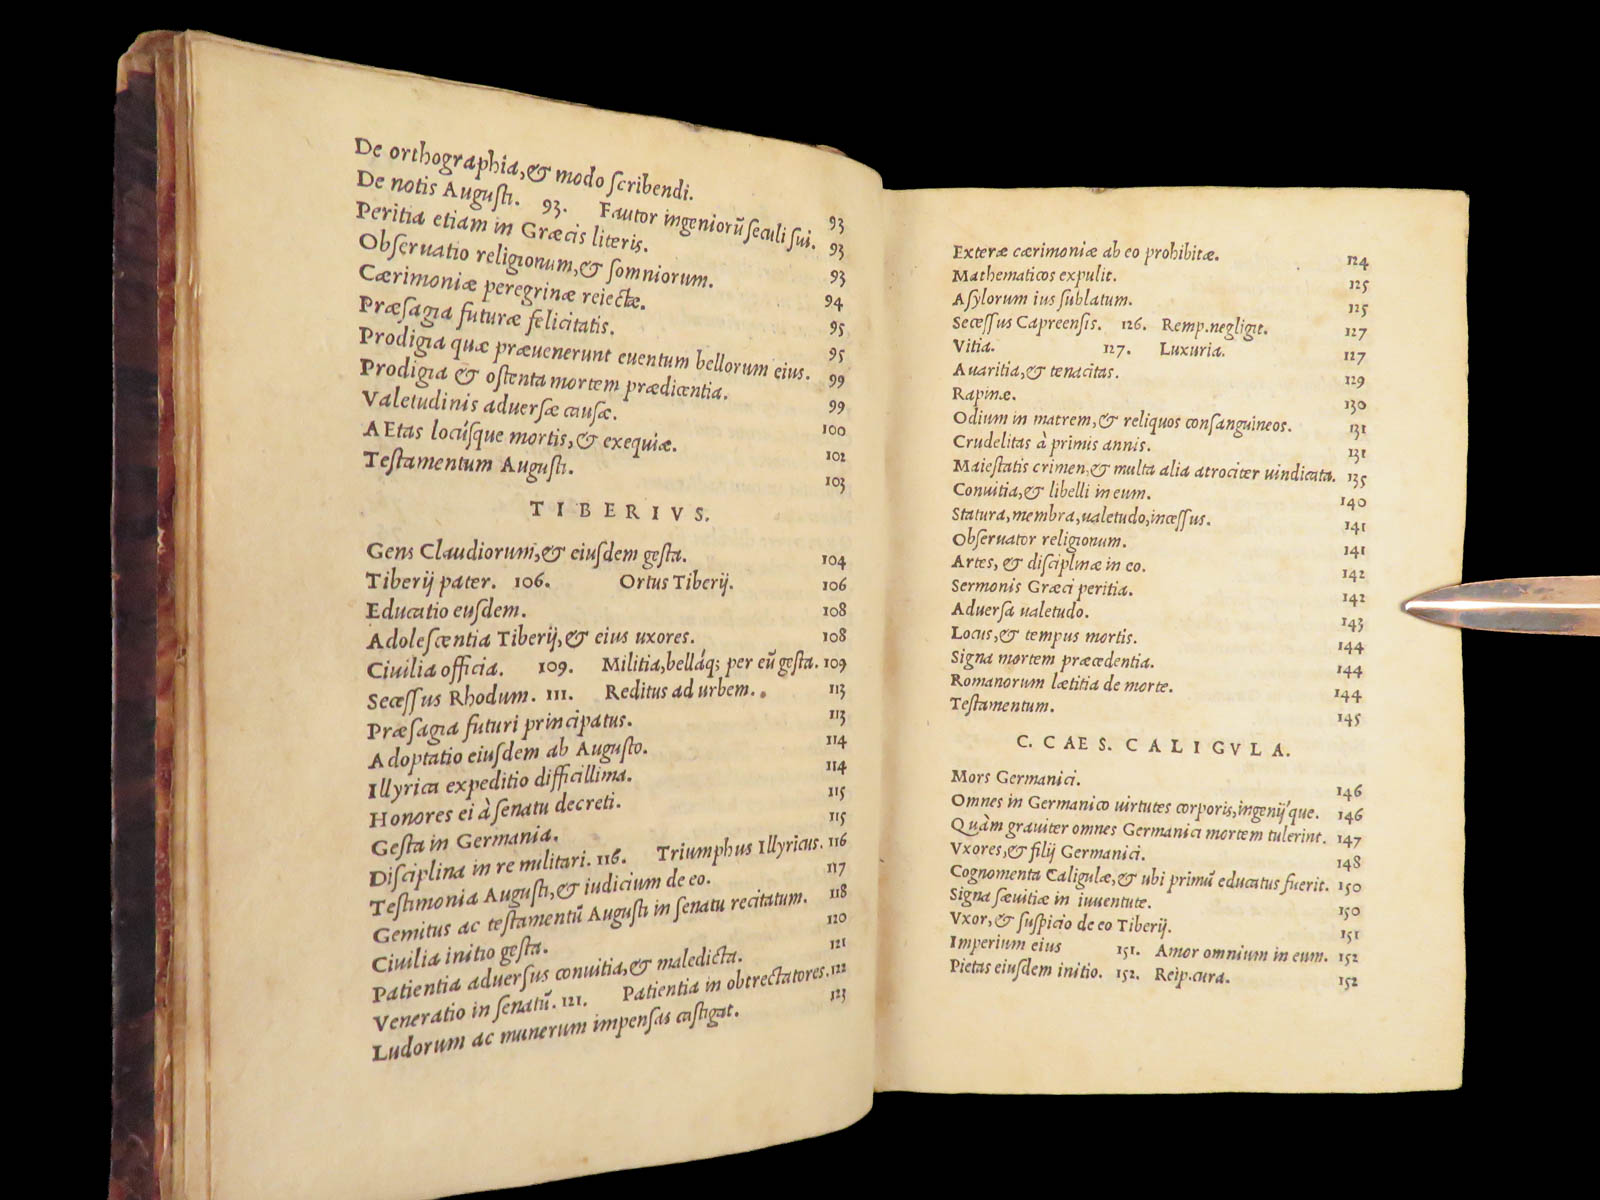 De orthographia,& modo ſcribendi. 93
De notis Auguſti. 93. Fautor ingeniorū ſeculi ſui. 93
Peritia etiam in Græcis literis. 93
Obſeruatio religionum,& ſomniorum. 94
Cærimoniæ peregrinæ reiectæ. 95
Præſagia futuræ felicitatis. 95
Prodigia quæ præuenerunt euentum bellorum eius. 99
Prodigia & oſtenta mortem prædicentia. 99
Valetudinis aduerſæ cauſæ. 100
AEtas locúſque mortis,& exequiæ. 102
Teſtamentum Auguſti. 103
TIBERIVS.
Gens Claudiorum,& eiuſdem geſta. 104
Tiberij pater. 106. Ortus Tiberij. 106
Educatio euſdem. 108
Adoleſcentia Tiberij,& eius uxores. 108
Ciuilia officia. 109. Militia,bellaq́; per eū geſta. 109
Seceſſus Rhodum. 111. Reditus ad urbem. 113
Præſagia futuri principatus. 113
Adoptatio eiuſdem ab Auguſto. 114
Illyrica expeditio difficillima. 114
Honores ei à ſenatu decreti. 115
Geſta in Germania. 115
Diſciplina in re militari. 116. Triumphus Illyricus. 116
Teſtimonia Auguſti,& iudicium de eo. 117
Gemitus ac teſtamentū Auguſti in ſenatu recitatum. 118
Ciuilia initio geſta. 120
Patientia aduerſus conuitia,& maledicta. 121
Veneratio in ſenatū. 121. Patientia in obtrectatores. 122
Ludorum ac munerum impenſas caſtigat. 123
Exteræ cærimoniæ ab eo prohibitæ. 124
Mathematicos expulit. 125
Aſylorum ius ſublatum. 125
Seceſſus Capreenſis. 126. Remp.negligit. 127
Vitia. 127. Luxuria. 127
Auaritia,& tenacitas. 129
Rapinæ. 130
Odium in matrem,& reliquos conſanguineos. 131
Crudelitas à primis annis. 131
Maieſtatis crimen,& multa alia atrociter uindicata. 135
Conuitia,& libelli in eum. 140
Statura,membra,ualetudo,inceſſus. 141
Obſeruator religionum. 141
Artes, & diſciplinæ in eo. 142
Sermonis Græci peritia. 142
Aduerſa ualetudo. 143
Locus,& tempus mortis. 144
Signa mortem præcedentia. 144
Romanorum lætitia de morte. 144
Teſtamentum. 145
C. CAES. CALIGVLA.
Mors Germanici. 146
Omnes in Germanico uirtutes corporis,ingenij́que. 146
Quàm grauiter omnes Germanici mortem tulerint. 147
Vxores,& filij Germanici. 148
Cognomenta Caligulæ,& ubi primū educatus fuerit. 150
Signa ſæuitiæ in iuuentute. 150
Vxor,& ſuſpicio de eo Tiberij. 151
Imperium eius 151. Amor omnium in eum. 152
Pietas eiuſdem initio. 152. Reip.cura. 152